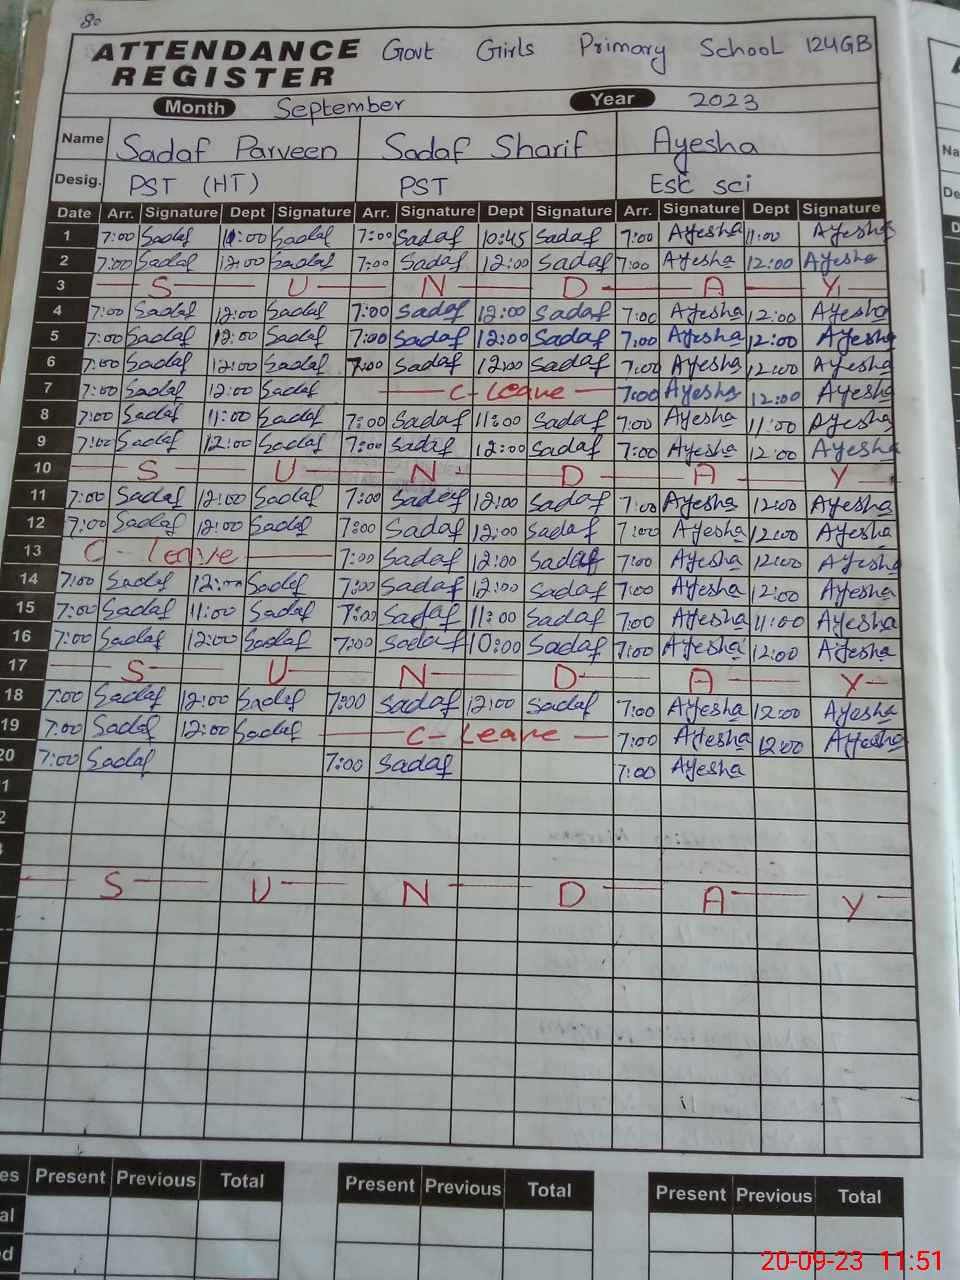 80
ATTENDANCE REGISTER Govt Girls Primary School 124GB
Month September Year 2023
Name Sadaf Parveen Sadaf Sharif Ayesha
Desig. PST (HT) PST Esk sci
Date Arr. Signature Dept Signature Arr. Signature Dept Signature Arr. Signature Dept Signature
1 7:00 Sadaf 11:00 Sadaf 7:00 Sadaf 10:45 Sadaf 7:00 Ayesha 11:00 Ayesha
2 7:00 Sadaf 12:00 Sadaf 7:00 Sadaf 12:00 Sadaf 7:00 Ayesha 12:00 Ayesha
3 S U N D A Y
4 7:00 Sadaf 12:00 Sadaf 7:00 Sadaf 12:00 Sadaf 7:00 Ayesha 12:00 Ayesha
5 7:00 Sadaf 12:00 Sadaf 7:00 Sadaf 12:00 Sadaf 7:00 Ayesha 12:00 Ayesha
6 7:00 Sadaf 12:00 Sadaf 7:00 Sadaf 12:00 Sadaf 7:00 Ayesha 12:00 Ayesha
7 7:00 Sadaf 12:00 Sadaf C-Leave 7:00 Ayesha 12:00 Ayesha
8 7:00 Sadaf 11:00 Sadaf 7:00 Sadaf 11:00 Sadaf 7:00 Ayesha 11:00 Ayesha
9 7:00 Sadaf 12:00 Sadaf 7:00 Sadaf 12:00 Sadaf 7:00 Ayesha 12:00 Ayesha
10 S U N D A Y
11 7:00 Sadaf 12:00 Sadaf 7:00 Sadaf 12:00 Sadaf 7:00 Ayesha 12:00 Ayesha
12 7:00 Sadaf 12:00 Sadaf 7:00 Sadaf 12:00 Sadaf 7:00 Ayesha 12:00 Ayesha
13 C-leave 7:00 Sadaf 12:00 Sadaf 7:00 Ayesha 12:00 Ayesha
14 7:00 Sadaf 12:00 Sadaf 7:00 Sadaf 12:00 Sadaf 7:00 Ayesha 12:00 Ayesha
15 7:00 Sadaf 11:00 Sadaf 7:00 Sadaf 11:00 Sadaf 7:00 Ayesha 11:00 Ayesha
16 7:00 Sadaf 12:00 Sadaf 7:00 Sadaf 10:00 Sadaf 7:00 Ayesha 12:00 Ayesha
17 S U N D A Y
18 7:00 Sadaf 12:00 Sadaf 7:00 Sadaf 12:00 Sadaf 7:00 Ayesha 12:00 Ayesha
19 7:00 Sadaf 12:00 Sadaf C-Leave 7:00 Ayesha 12:00 Ayesha
20 7:00 Sadaf 7:00 Sadaf 7:00 Ayesha
1
2
S U N D A Y
es Present Previous Total Present Previous Total Present Previous Total
al
d
20-09-23 11:51